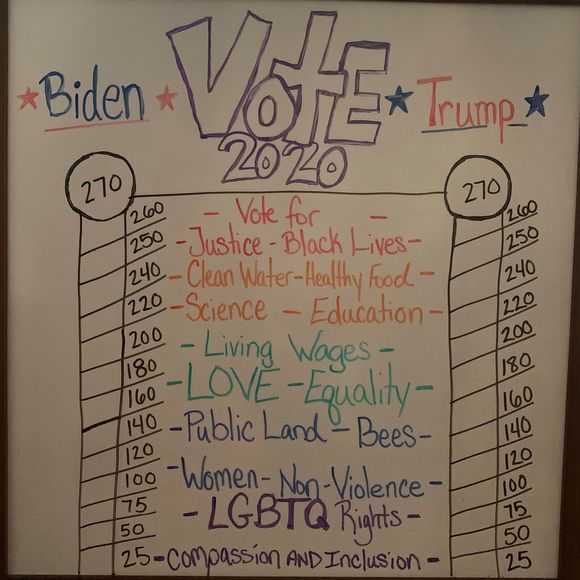 ★Biden★ VOTE ★Trump★
2020
270 270
260 - Vote for - 260
250 -Justice-Black Lives- 250
240 -Clean Water-Healthy Food- 240
220 -Science - Education- 220
200 -Living Wages- 200
180 180
160 -LOVE-Equality- 160
140 -Public Land-Bees- 140
120 120
100 -Women-Non-Violence- 100
75 -LGBTQ Rights- 75
50 50
25 -Compassion AND Inclusion- 25